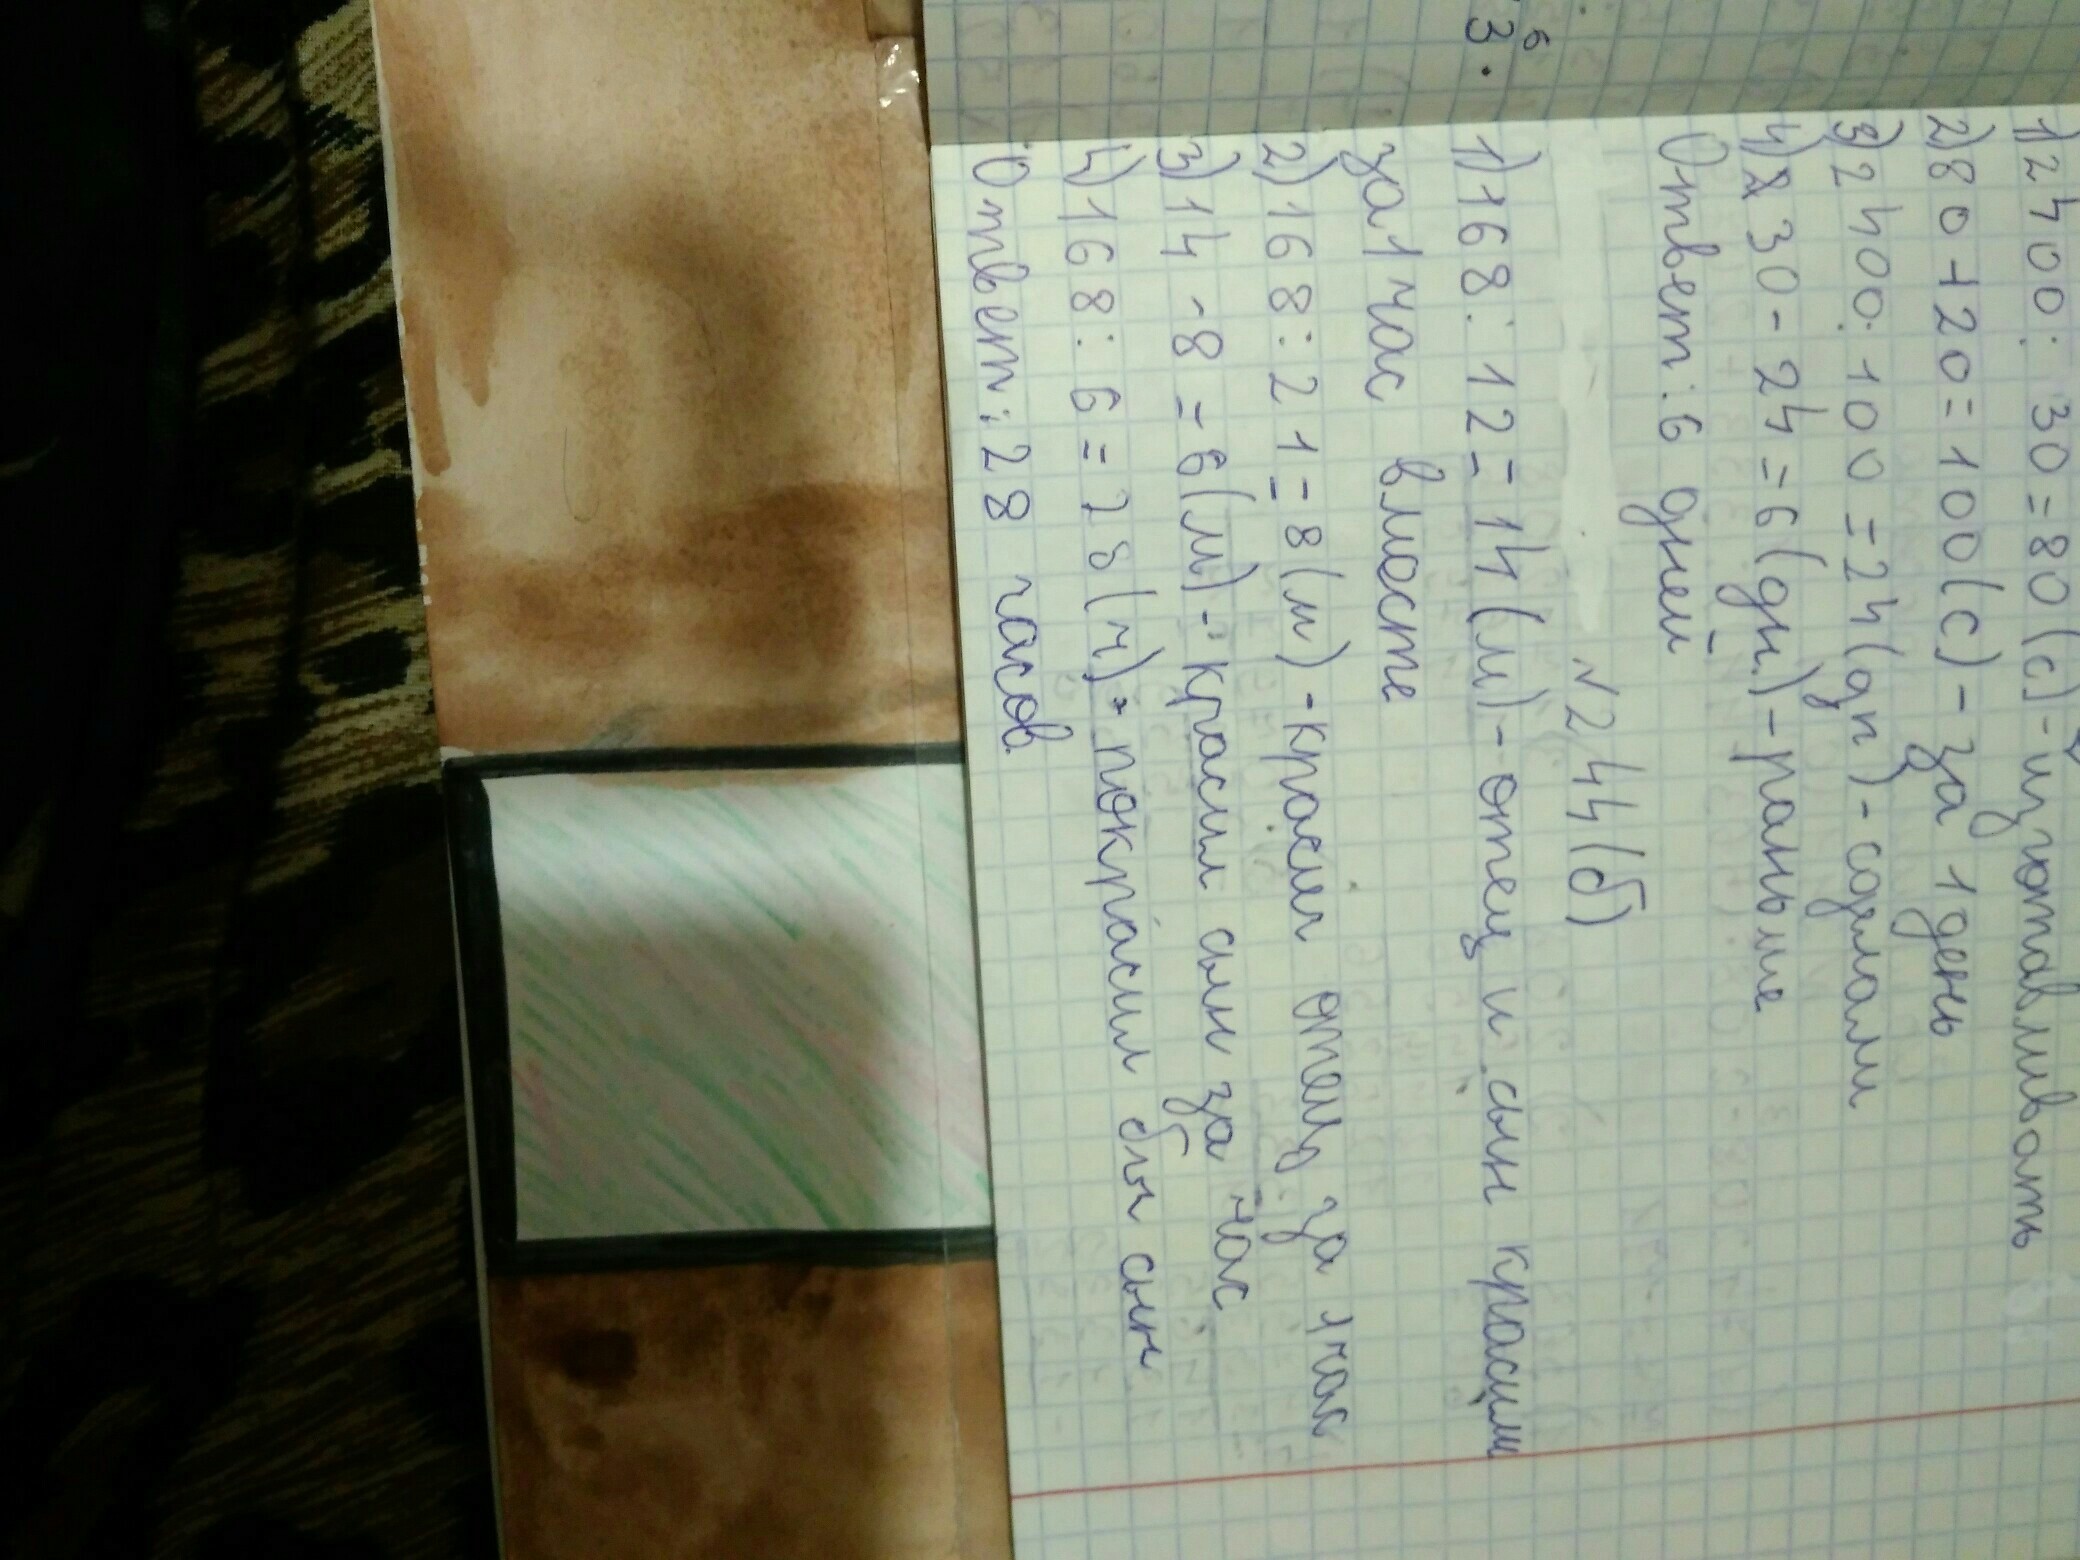 6
3.
1) 2400 : 30 = 80 (с) - изготавливать
2) 80 + 20 = 100 (с) - за 1 день
3) 2400 : 100 = 24 (дн) - сделали
4) 30 - 24 = 6 (дн.) - раньше
Ответ: 6 дней
№244(б)
1) 168 : 12 = 14 (м) - отец и сын красили
за 1 час вместе
2) 168 : 21 = 8 (м) - красил отец за 1 час
3) 14 - 8 = 6 (м) - красил сын за час
4) 168 : 6 = 28 (ч) - покрасил бы сын
Ответ: 28 часов